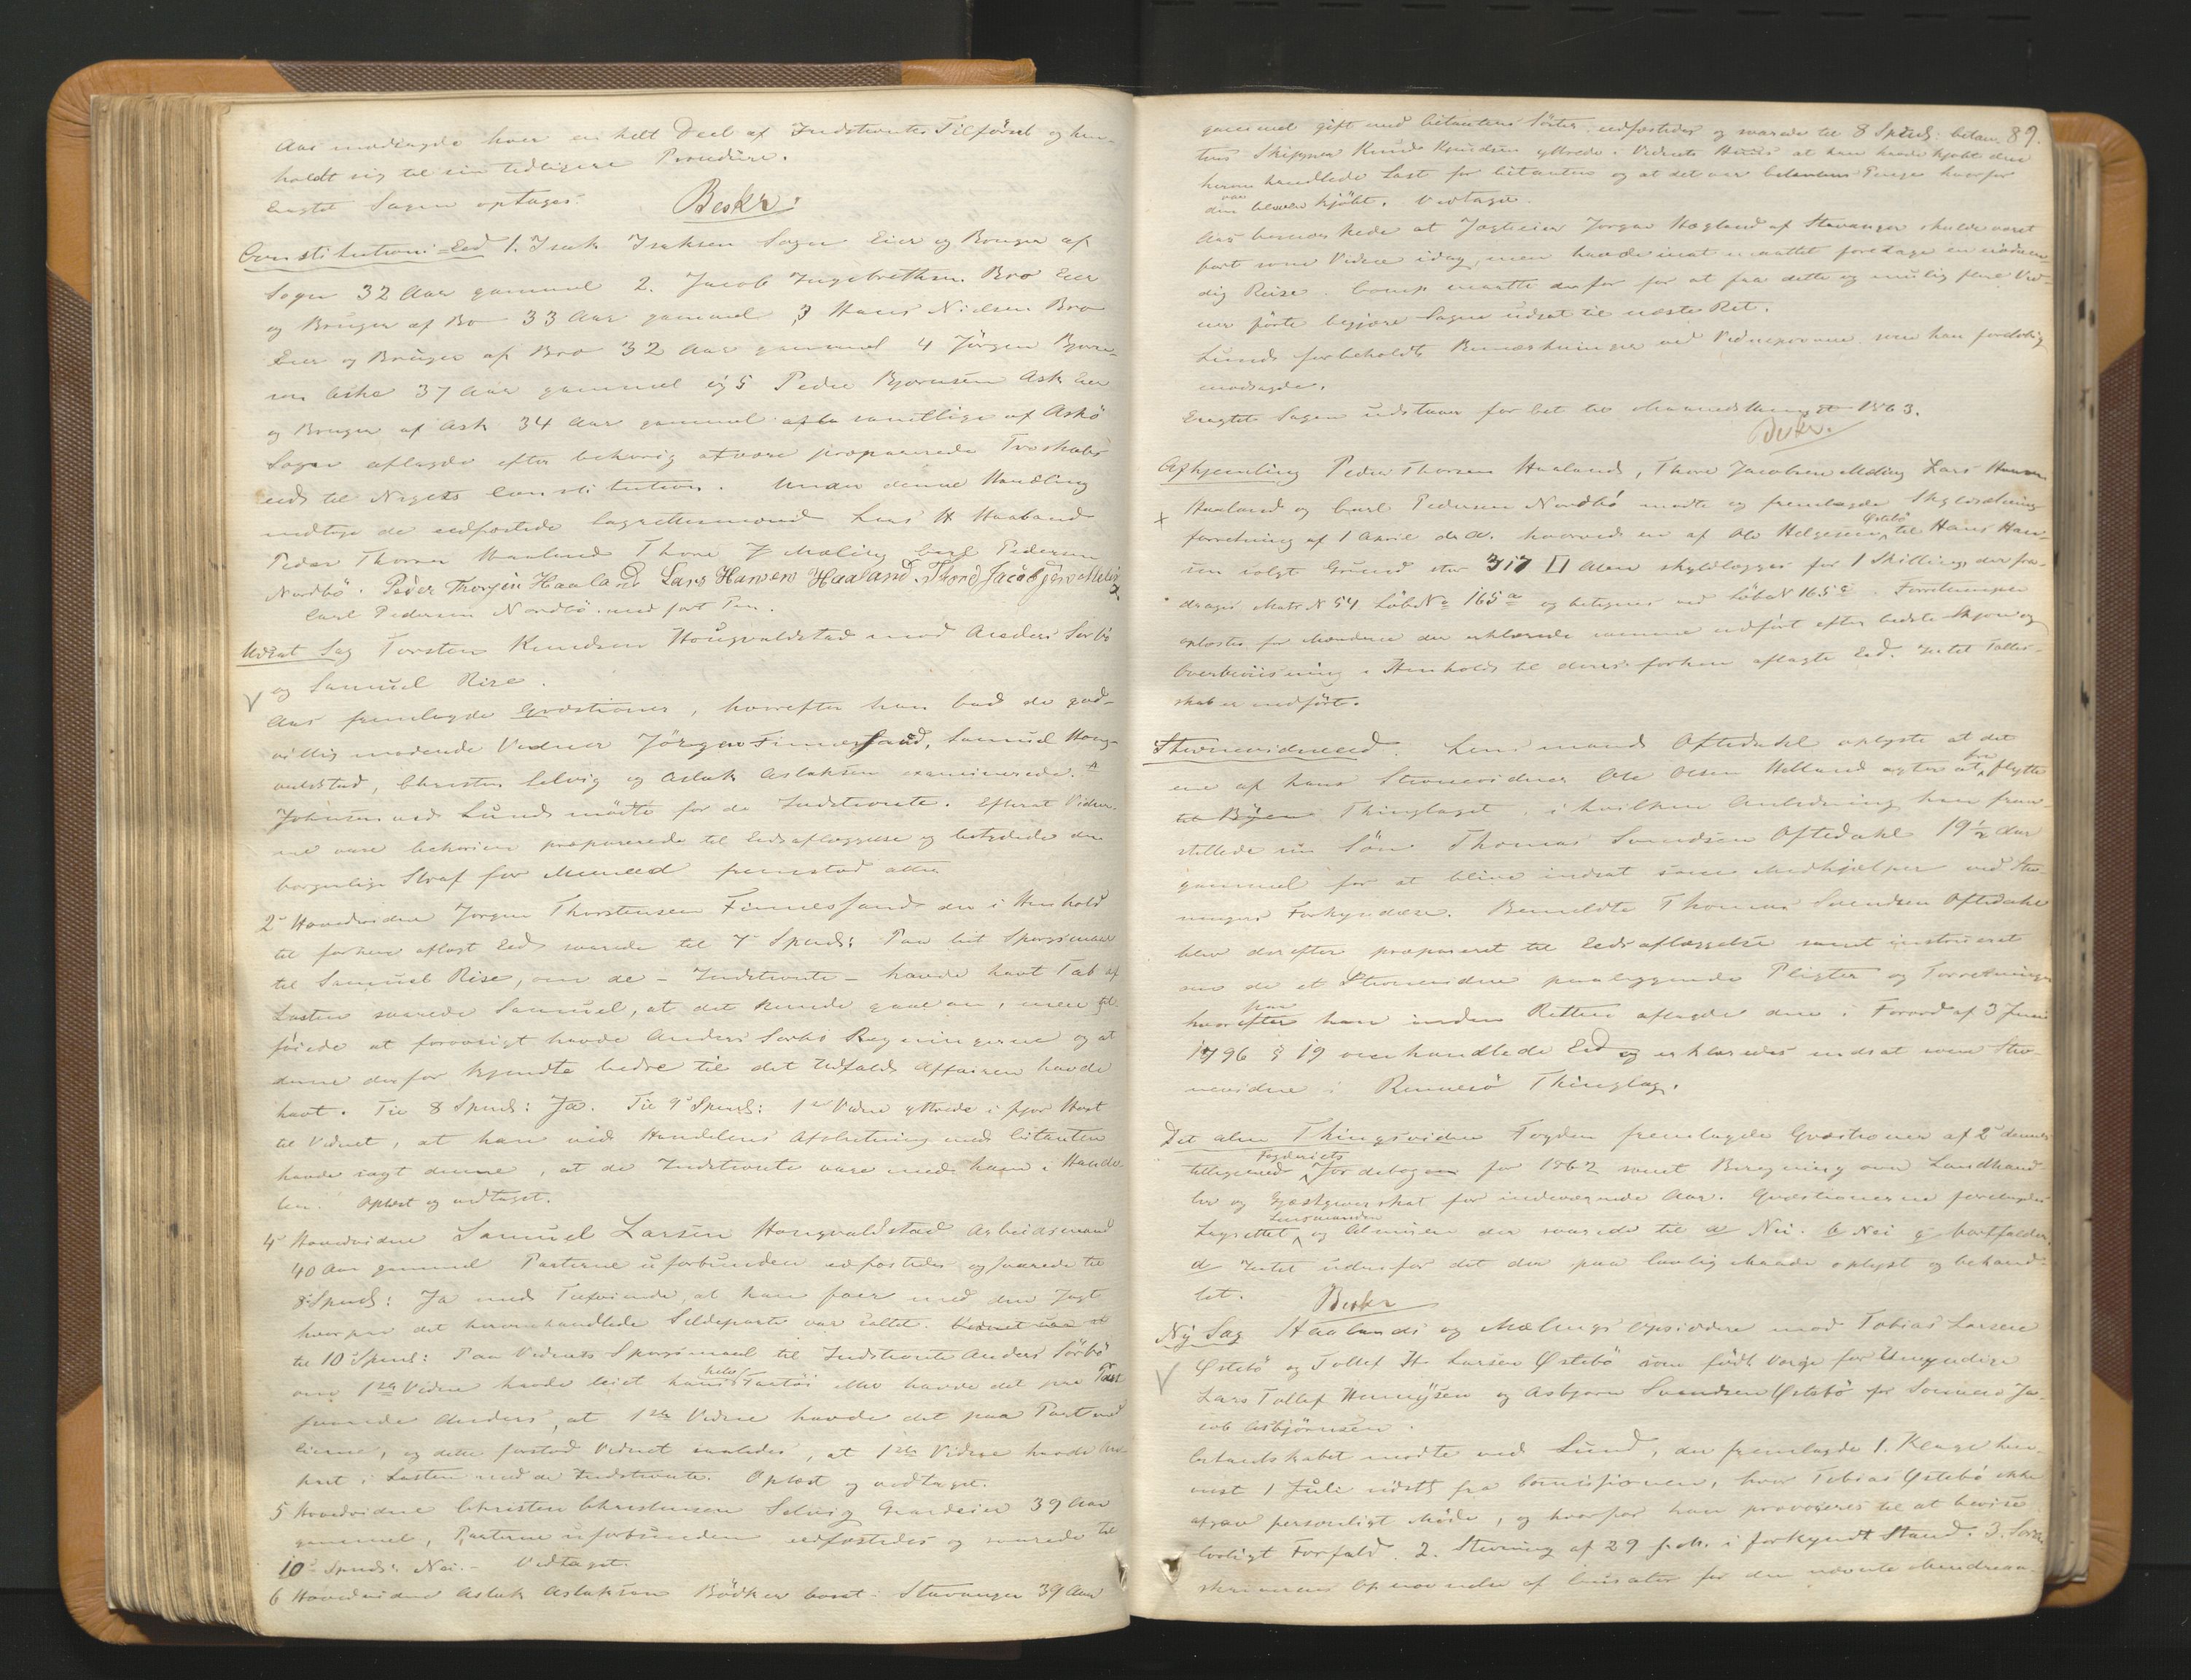 Aas modsagde hver en helt Deel af Indstevntes Tilførsel og hen-
holdt sig til sin tidligere Procedure.
Eragtet Sagen optages.
Beskr:
Constitutions-Eed 1. Isak Isaksen Sogn Eier og Bruger af
Sogn 32 Aar gammel 2. Jacob Ingebrethsen Bro Eier
og Bruger af Bro 33 Aar gammel 3 Hans Nielsen Bro
Eier og Bruger af Bro 32 Aar gammel 4 Jørgen Bjørn-
sen Aske 37 Aar gammel og 5 Peder Bjørnsen Ask Eier
og Bruger af Ask 34 Aar gammel samtlige af Askø
Sogn aflagde efter behørig at være præparerede Troskabs
eed til Rigets Constitution. Under denne Handling
medtoge de eedfæstede Lagrettesmænd Lars H Haaland
Peder Thorsen Haaland Thore J Mæling Carl Pedersen
Nordbø. Peder Thorsen Haaland Lars Hansen Haaland Thore Jacobsen Meling
Carl Pedersen Nordbø med ført Pen.
Udsat Sag Torsten Knudsen Hougvaldstad mod Anders Sørbø
og Samuel Rise.
Aas fremlagde Qvæstioner, hvorefter han bad de god-
villig mødende Vidner Jørgen Finnesand, Samuel Houg-
valdstad, Christen Selvig og Aslak Aslaksen examinerede.
Johnsen ved Lund mødte for de Indstevnte. Efterat Vidner-
ne vare behørigen præparerede til Eedsaflæggelse og betydede den
borgerlige Straf for Meneed fremstod atter
2 Hovedvidne Jørgen Thorstensen Finnesand der i Henhold
til forhen aflagt Eed svarede til 7 Spmd: Paa hit Spørgsmaal
til Samuel Rise, om de - Indstevnte - havde havt Tab af
Lasten svarede Samuel, at det kunde gaae an, men til-
føiede at forøvrigt havde Anders Sørbø Regningerne og at
denne derfor kjendte bedre til det Udfald Affairen havde
havt. Til 8 Spmd: Ja. Til 9 Spmd: 1ste Vidne yttrede i fjor Høst
til Vidnet, at han ved Handelens Afslutning med Citanten
havde sagt denne, at de Indstevnte vare med ham i Hande-
len. Oplæst og vedtaget.
4 Hovedvidne Samuel Larsen Hougvaldstad Arbeidsmand
40 Aar gammel Parterne uforbunden eedfæstedes og svarede til
8 Spmd: Ja med Tilføiende, at han foer med den Jagt
hvorpaa det heromhandlede Sildeparti var saltet.
til 10 Spmd: Paa Vidnets Spørgsmaal til Indstevnte Anders Sørbø
om 1ste Vidne havde leiet hans hele Fartøi eller havde det paa Part
svarede Anders, at 1ste Vidne havde det paa Part med
Eierne, og dette forstod Vidnet saaledes, at 1ste Vidne havde An-
part i Lasten med de Indstevnte. Oplæst og vedtaget.
5 Hovedvidne Christen Christensen Selvig Gaardeier 39 Aar
gammel, Parterne uforbunden eedfæstedes og svarede til
10 Spmd: Nei. - Vedtaget.
6 Hovedvidne Aslak Aslaksen Bødker boset i Stavanger 39 Aar
89.
gammel gift med Citantens Søster eedfæstedes og svarede til 8 Spmd: Citan-
tens Skipper Knud Knudsen yttrede i Vidnets Huus at han havde kjøbt den
heromhandlede Last for Citanten og at det var Citantens Penge hvorfor
den var bleven kjøbt. Vedtaget.
Aas bemærkede at Jægteeier Jørgen Høgland af Stavanger skulde været
ført som Vidne idag, men havde inat maattet foretage en nødven-
dig Reise. Comp. maatte derfor for at faa dette og mulig flere Vid-
ner førte begjære Sagen udsat til næste Ret.
Lund forbeholdt Bemærkninger ved Vidneprovene som han foreløbig
modsagde.
Eragtet Sagen udstaaer forbet til Maanedsthinget 1863.
Beskr.
Afhjemling Peder Thorsen Haaland, Thore Jacobsen Meling Lars Hansen
Haaland og Carl Pedersen Nordbø mødte og fremlagde Skyldsætnings-
forretning af 1 April d. A. hvorved en af Ole Helgesen Østebø til Hans Han-
sen solgte Grund stor 317 □ Alen skyldlægges for 1 Skilling, der fra-
drages Matr. N 54 Løb N 165a og betegnes ved Løb N 165c. Forretningen
oplæstes for Mændene der erklærede samme udført efter bedste Skjøn og
Overbeviisning i Henhold til deres forhen aflagte Eed. Intet Fælles-
skab er medført.
Stevnevidneeed. Lensmand Oftedahl oplyste at det
ene af hans Stevnevidner Ole Olsen Helland agter at flytte fra
til Byen Thinglaget, i hvilken Anledning han frem-
stillede sin Søn Thomas Svendsen Oftedahl 19½ Aar
gammel for at blive indsat som Medhjælper ved Stev-
ningers Forkyndelse. Bemeldte Thomas Svendsen Oftedahl
blev derefter præpareret til Eedsaflæggelse samt instrueret
om de et Stevnevidne paaliggende Pligter og Forretninger
hvorpaa han inden Retten aflagde den i Forord. af 3 Juni
1796 § 19 omhandlede Eed og erklæredes indsat som Stev-
nevidne i Rennesø Thinglag.
Det alm Thingsvidne Fogden fremlagde Qvæstioner af 2 dennes
tilligemed Fogderiets Jordebogen for 1862 samt Beregning over Landhand-
ler og Gjæstgiverskat for indeværende Aar. Qvæstionerne forelagdes
Lagrettet Lensmanden og Almuen der svarede til a Nei. b Nei c bortfalder.
d Intet udenfor det der paa lovlig Maade oplyst og behand-
let.
Beskr
Ny Sag Haalands og Mælings Opsiddere mod Tobias Larsen
Østebø og Tollef H. Larsen Østebø som født Verge for Umyndige
Lars Tollef Henrysen og Asbjørn Svendsen Østebø for Sønnen Ja-
cob Asbjørnsen.
Citantskabet mødte ved Lund, der fremlagde 1. Klage hen-
vist 1 Juli sidstl. fra Comissionen, hvor Tobias Østebø ikke
afgav personligt Møde, og hvorfor han provoceres til at bevise
lovligt Forfald. 2. Stevning af 29 f. M. i forkyndt Stand. 3. Soren-
skriverens Opnævnelse af